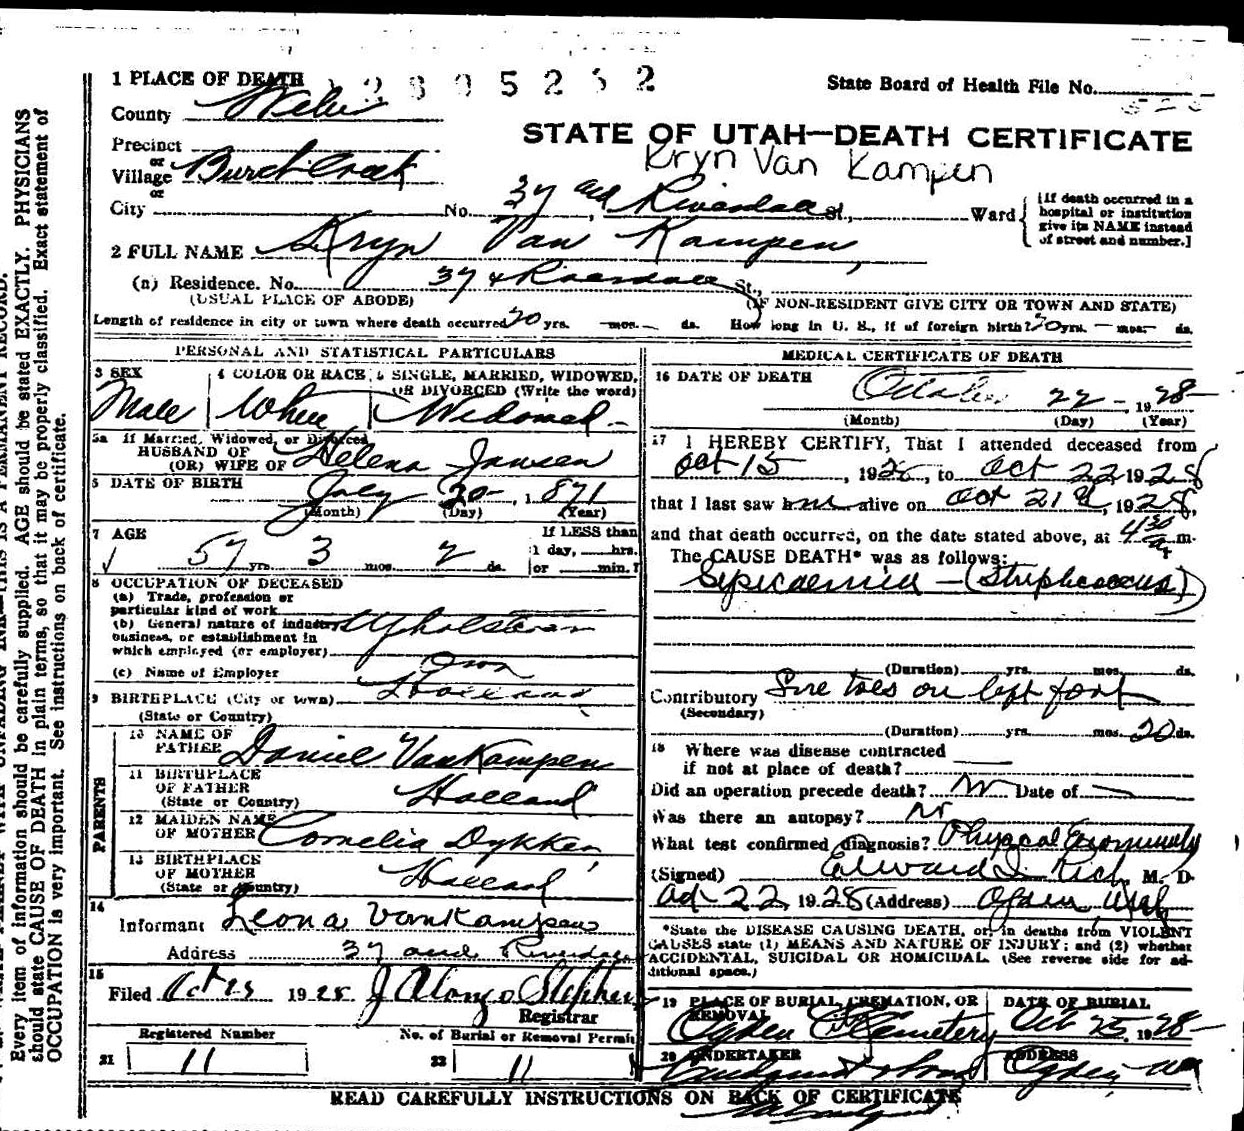 1 PLACE OF DEATH
State Board of Health File No.
County Weber
STATE OF UTAH—DEATH CERTIFICATE
Kryn Van Kampen
Precinct
or
Village Burch Creek
or
City No. 37 and Riverdale St., Ward
[If death occurred in a hospital or institution give its NAME instead of street and number.]
2 FULL NAME Kryn Van Kampen,
(a) Residence. No. 37 & Riverdale St.,
(USUAL PLACE OF ABODE) (IF NON-RESIDENT GIVE CITY OR TOWN AND STATE)
Length of residence in city or town where death occurred 20 yrs. — mos. — ds. How long in U. S., if of foreign birth? 20 yrs. — mos. — ds.
PERSONAL AND STATISTICAL PARTICULARS
3 SEX 4 COLOR OR RACE 5 SINGLE, MARRIED, WIDOWED, OR DIVORCED (Write the word)
Male White Widowed
5a If Married, Widowed, or Divorced
HUSBAND OF
(OR) WIFE OF Helena Jansen
6 DATE OF BIRTH July 20 - 1871
(Month) (Day) (Year)
7 AGE If LESS than
57 yrs. 3 mos. 2 ds. 1 day, hrs.
or min.?
8 OCCUPATION OF DECEASED
(a) Trade, profession or
particular kind of work
(b) General nature of industry
business, or establishment in
which employed (or employer)
(c) Name of Employer Own
9 BIRTHPLACE (City or town) Holland
(State or Country)
PARENTS
10 NAME OF
FATHER Daniel VanKampen
11 BIRTHPLACE
OF FATHER Holland
(State or Country)
12 MAIDEN NAME
OF MOTHER Cornelia Dykken
13 BIRTHPLACE
OF MOTHER Holland
(State or Country)
14
Informant Leona VanKampen
Address 37 and Riverdale
15
Filed Oct 23 1928 J Alonzo Stephens
Registrar
Registered Number No. of Burial or Removal Permit
21 11 22 11
MEDICAL CERTIFICATE OF DEATH
16 DATE OF DEATH October 22 - 1928
(Month) (Day) (Year)
17 I HEREBY CERTIFY, That I attended deceased from
Oct 15, 1928, to Oct 22 1928
that I last saw him alive on Oct 21st, 1928,
and that death occurred, on the date stated above, at 4 30 a m.
The CAUSE DEATH* was as follows:
(Duration) yrs. mos. ds.
Contributory Sore toes on left foot
(Secondary)
(Duration) yrs. mos. 20 ds.
18 Where was disease contracted
if not at place of death?
Did an operation precede death? No Date of —
Was there an autopsy? No
What test confirmed diagnosis? Physical
(Signed) Edward I. Rich, M. D.
Oct 22 1928 (Address) Ogden Utah
*State the DISEASE CAUSING DEATH, or, in deaths from VIOLENT
CAUSES state (1) MEANS AND NATURE OF INJURY; and (2) whether
ACCIDENTAL, SUICIDAL OR HOMICIDAL. (See reverse side for ad-
ditional space.)
19 PLACE OF BURIAL, CREMATION, OR REMOVAL DATE OF BURIAL
Ogden City Cemetery Oct 25, 1928
20 UNDERTAKER ADDRESS
Ogden, Utah
READ CAREFULLY INSTRUCTIONS ON BACK OF CERTIFICATE
Every item of information should be carefully supplied. AGE should be stated EXACTLY. PHYSICIANS
should state CAUSE OF DEATH in plain terms, so that it may be properly classified. Exact statement of
OCCUPATION is very important. See instructions on back of certificate.